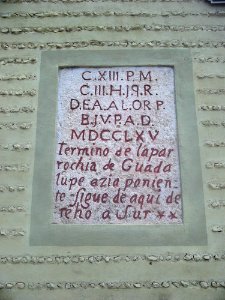 C.XIII.P.M.
C.III.H.J9.R.
D.E.A.A.L.OR P.
B.J.V.P.A.D.
MDCCLXV
Termino de la par
rochia de Guada
lupe azia ponien-
te sigue de aqui de
recho a Sur **